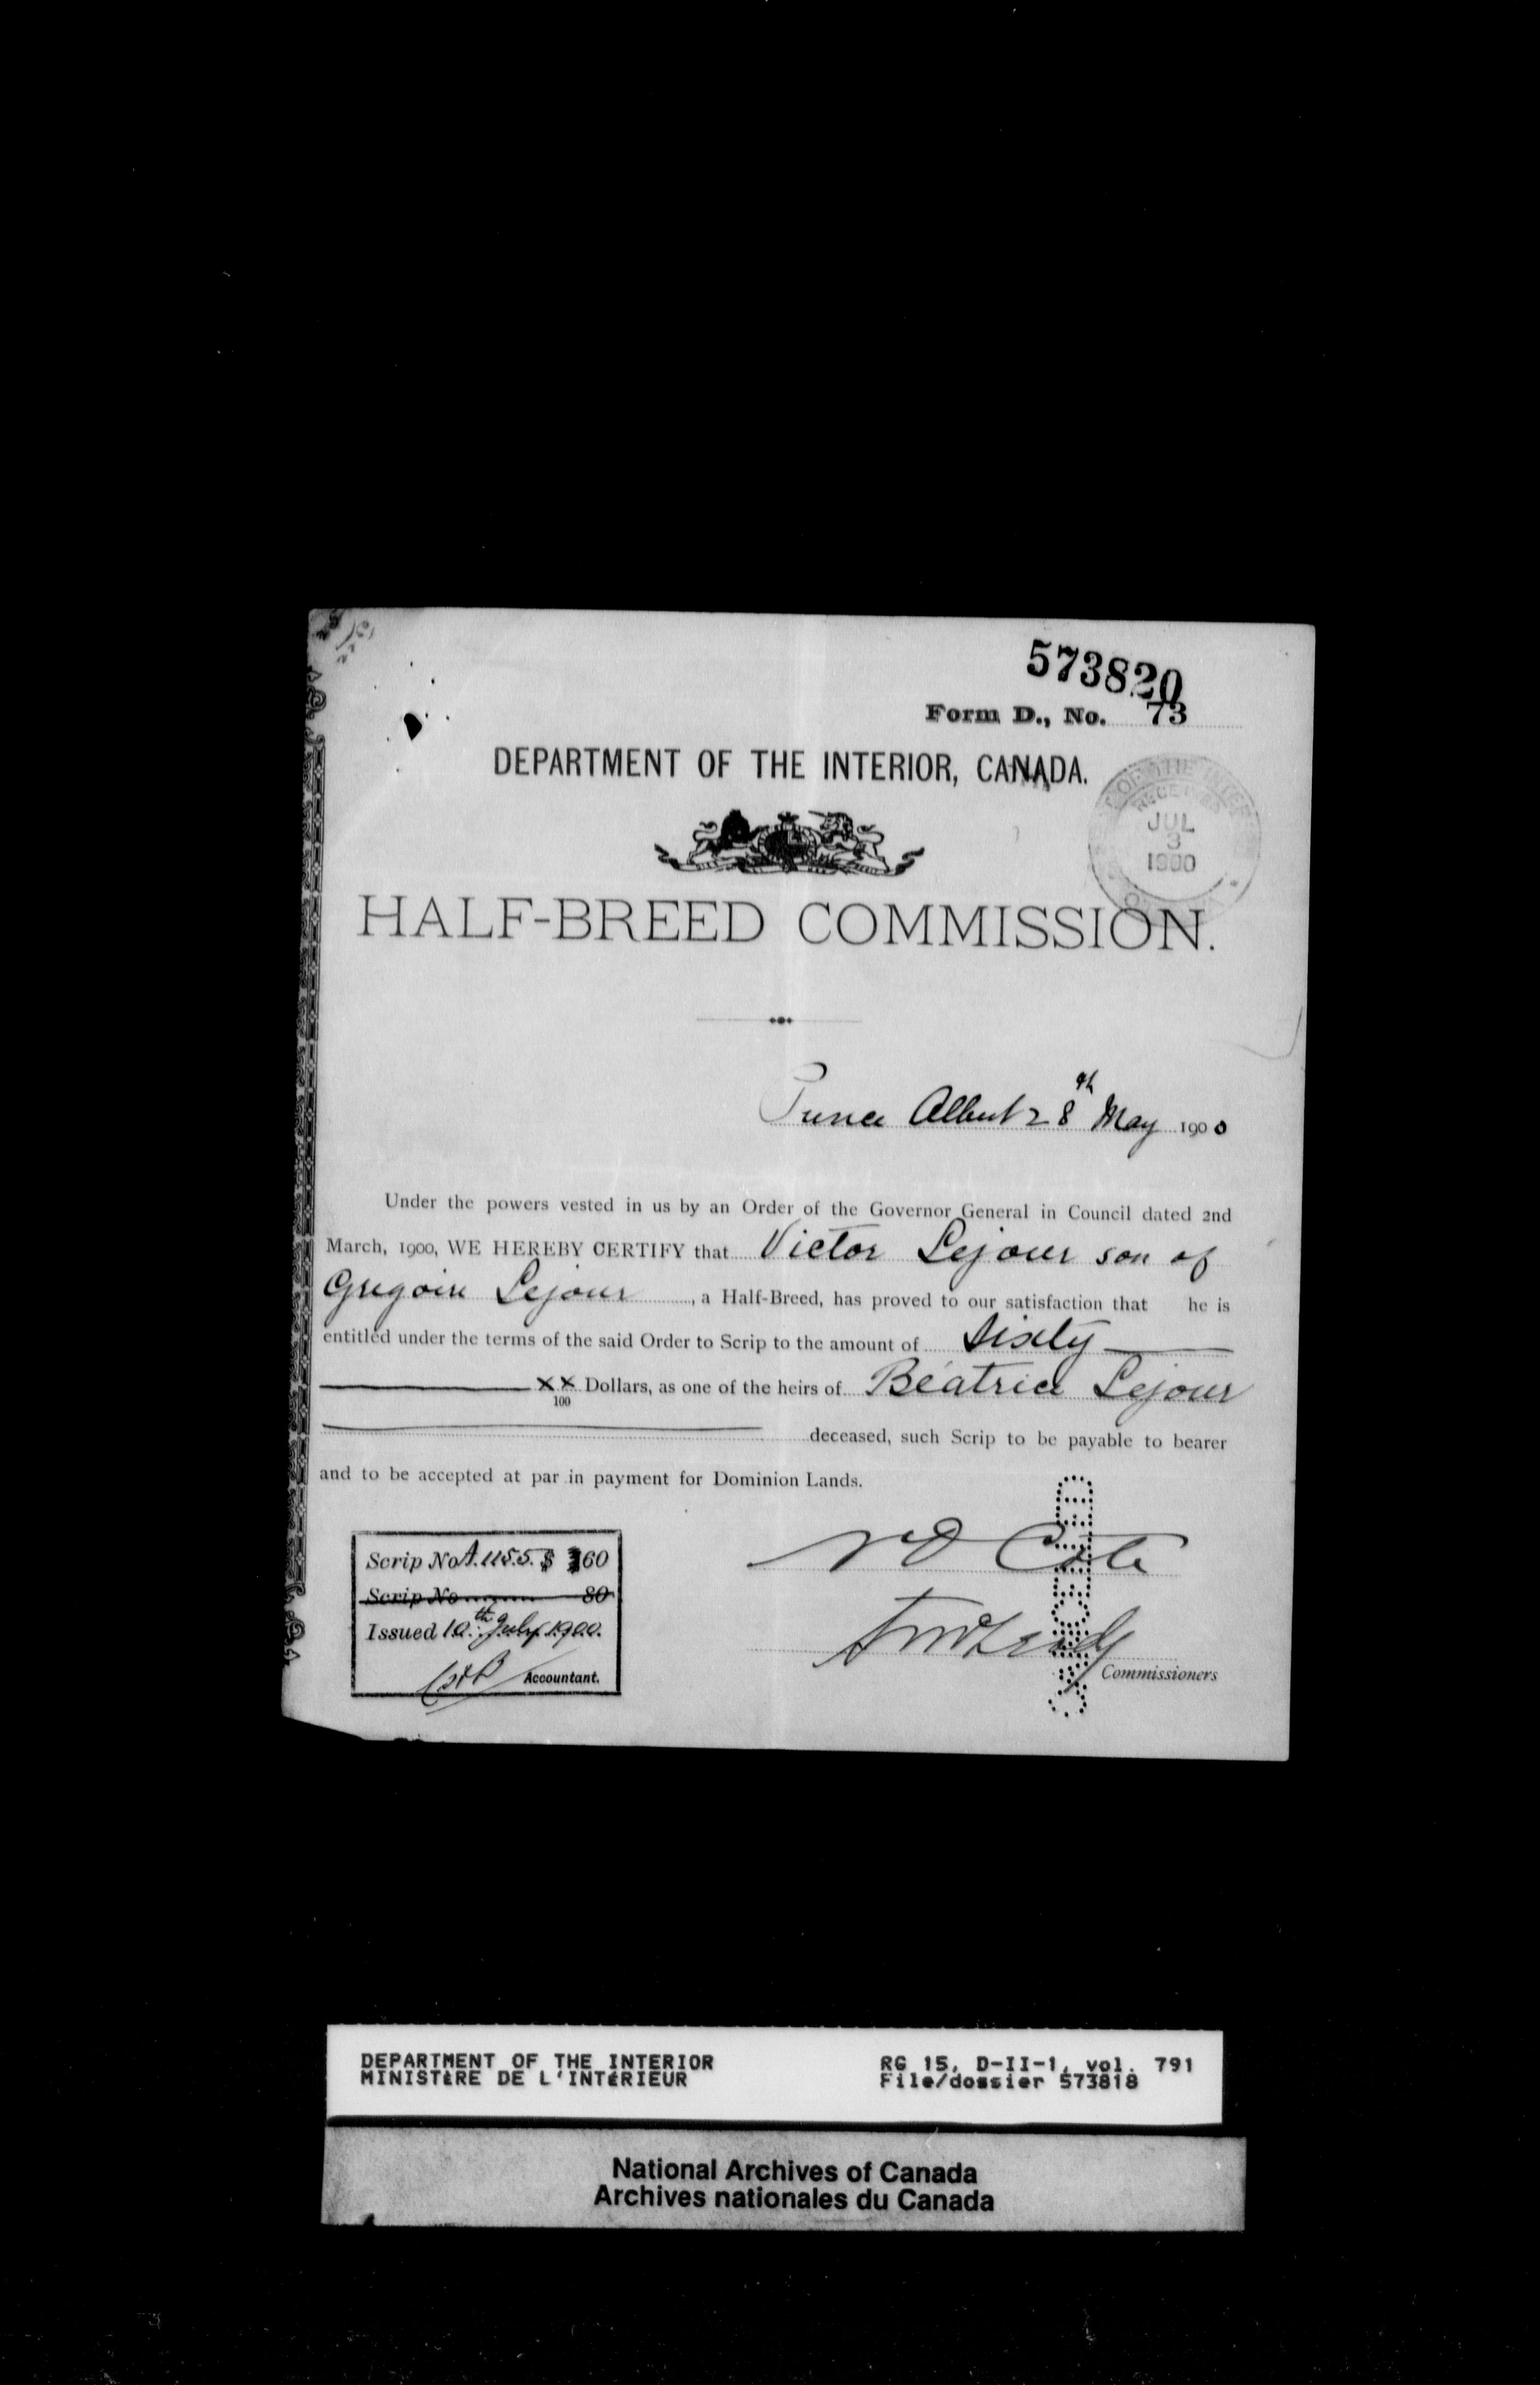 573820
Form D., No. 73
DEPARTMENT OF THE INTERIOR, CANADA.
RECEIVED
JUL
3
1900
HALF-BREED COMMISSION.
Prince Albert 28th May 1900
Under the powers vested in us by an Order of the Governor General in Council dated 2nd
March, 1900, WE HEREBY CERTIFY that Victor Lejour son of
Gregoire Lejour, a Half-Breed, has proved to our satisfaction that he is
entitled under the terms of the said Order to Scrip to the amount of Sixty
xx/100 Dollars, as one of the heirs of Béatrice Lejour
deceased, such Scrip to be payable to bearer
and to be accepted at par in payment for Dominion Lands.
Scrip No A.1155 $ 60
Scrip No 80
Issued 10th July 1900.
Accountant.
N O Cote
Commissioners
DEPARTMENT OF THE INTERIOR
MINISTÈRE DE L'INTÉRIEUR
RG 15, D-II-1, vol. 791
File/dossier 573818
National Archives of Canada
Archives nationales du Canada